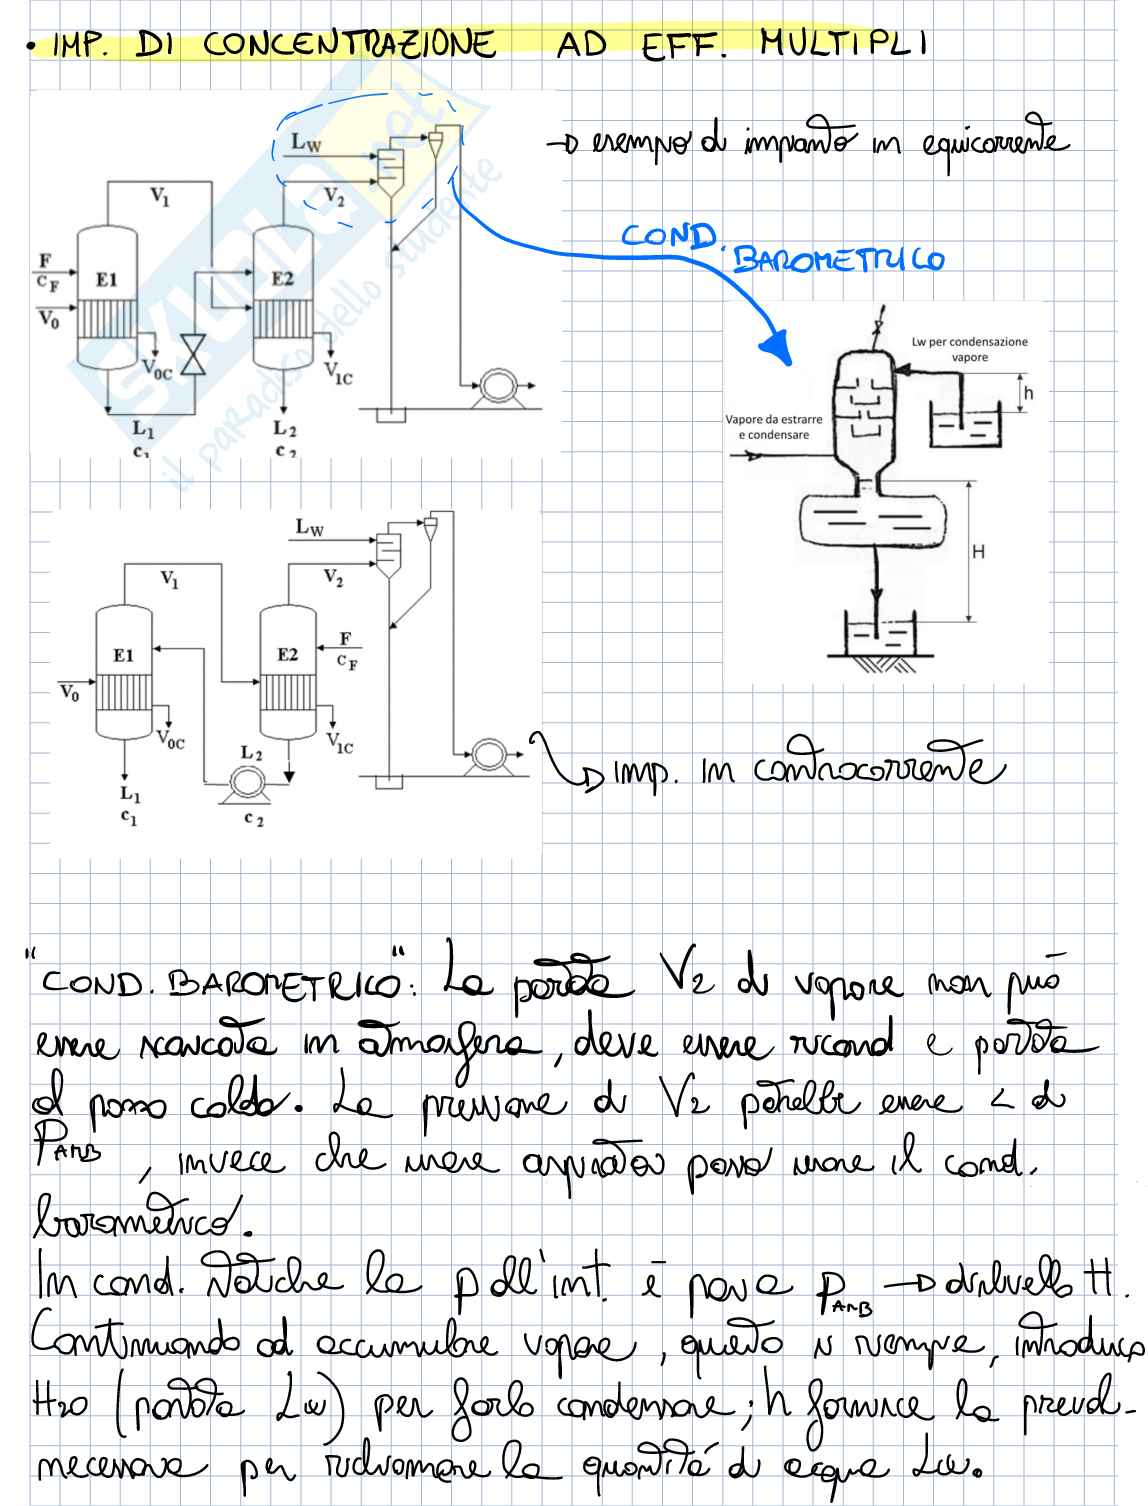 • IMP. DI CONCENTRAZIONE AD EFF. MULTIPLI
→ esempio di impianto in equicorrente
LW
V1
V2
F
CF
E1
E2
V0
V0C
V1C
L1
c1
L2
c2
COND. BAROMETRICO
Lw per condensazione
vapore
h
Vapore da estrarre
e condensare
H
LW
V1
V2
E1
E2
F
CF
V0
V0C
V1C
L2
c2
L1
c1
→ imp. in controcorrente
SKUOLA.net
il paradiso dello studente
"COND. BAROMETRICO": La portata V2 di vapore non può
essere scaricata in atmosfera, deve essere ricond e portata
al pozzo caldo. La pressione di V2 potrebbe essere < di
PAMB, invece che usare aspiratori posso usare il cond.
barometrico.
In cond. statiche la p all'int. è pari a PAMB → dislivello H.
Continuando ad accumulare vapore, questo si riempie, introduco
H2O (portata Lw) per farlo condensare; h fornisce la preval-
necessaria per richiamare la quantità di acqua Lw.